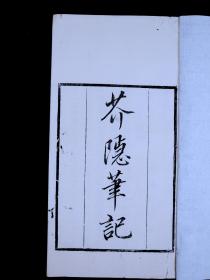 芥隱筆記